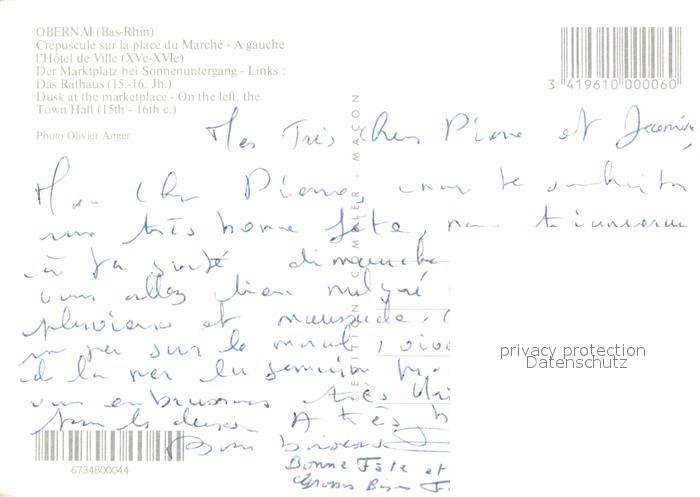 OBERNAI (Bas-Rhin)
Crépuscule sur la place du Marché - A gauche
l'Hôtel de Ville (XVe-XVIe)
Der Marktplatz bei Sonnenuntergang - Links :
Das Rathaus (15.-16. Jh.)
Dusk at the marketplace - On the left, the
Town Hall (15th - 16th c.)
Photo Olivier Anger
3 419610 000060
EDITION COMBIER - MACON
Mes Très Chers Pierre et
Mon Cher Pierre, te
une très bonne fête,
à ta santé dimanche
vous allez bien malgré
pluvieux et maussade.
un peu sur le moral,
à la mer la semaine
vous embrassons très
tous les deux. A très
Bons baisers
Bonne Fête et
Grosses Bises
privacy protection
Datenschutz
6734800044